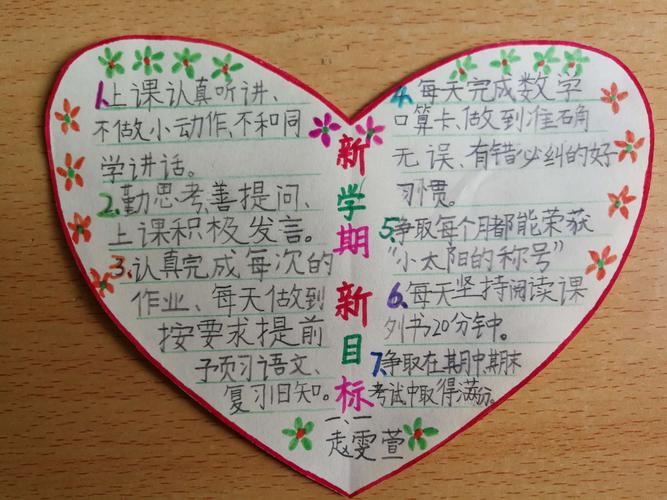 1.上课认真听讲、
不做小动作、不和同
学讲话。
2.勤思考、善提问、
上课积极发言。
3.认真完成每次的
作业、每天做到
按要求提前
预习语文、
复习旧知。
新学期新目标
4.每天完成数学
口算卡、做到准确
无误、有错必纠的好
习惯。
5.争取每个月都能荣获
“小太阳的称号”
6.每天坚持阅读课
列书20分钟。
7.争取在期中、期末
考试中取得满分。
一、一
赵雯萱